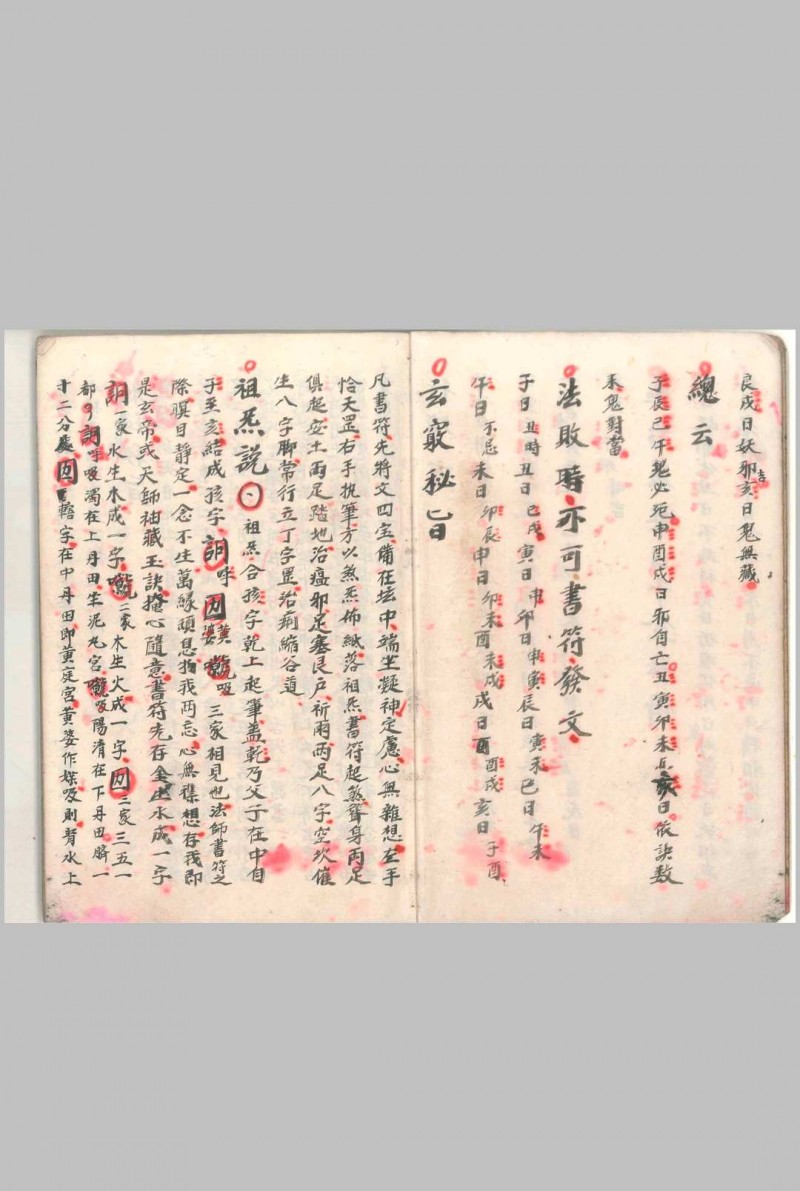 良戌日妖邪亥日鬼無藏
吉
總云
子辰巳午鬼必死申酉戌日邪自亡丑寅卯未日依訣数
禾鬼對當
法敗時亦可書符發文
子日丑時丑日巳戌寅日申卯日申寅辰日寅未巳日午未
午日不忌未日卯辰申日卯未酉未戌戌日酉戌亥日子酉
玄竅秘旨
凡書符先將文四宝備在坛中端坐凝神定慮心無雜想左手
恰天罡右手執筆方以煞炁佈紙落祖炁書符起煞聳身兩足
俱起安土兩足踏地治瘟邪足塞艮户祈雨兩足八字空坎催
生八字脚常行立丁字罡治痢縮谷道
祖炁說 祖炁合孩字乾上起筆蓋乾乃父子在中自
子至亥結成孩字 呼 黄婆 吸三家相見也法師書符之
際瞑目靜定一念不生萬緣頓息物我两忘心無襍想存我即
是玄帝或天師袖藏玉訣掩心隨意書符先存金生水成一字
一家水生木成一字 二家木生火成一字 三家三五一
都 呼吸濁在上丹田坐泥丸宮 吸陽清在下丹田臍一
寸二八分處 轄字在中丹田即黄庭宮黄婆作媒吸則背水上